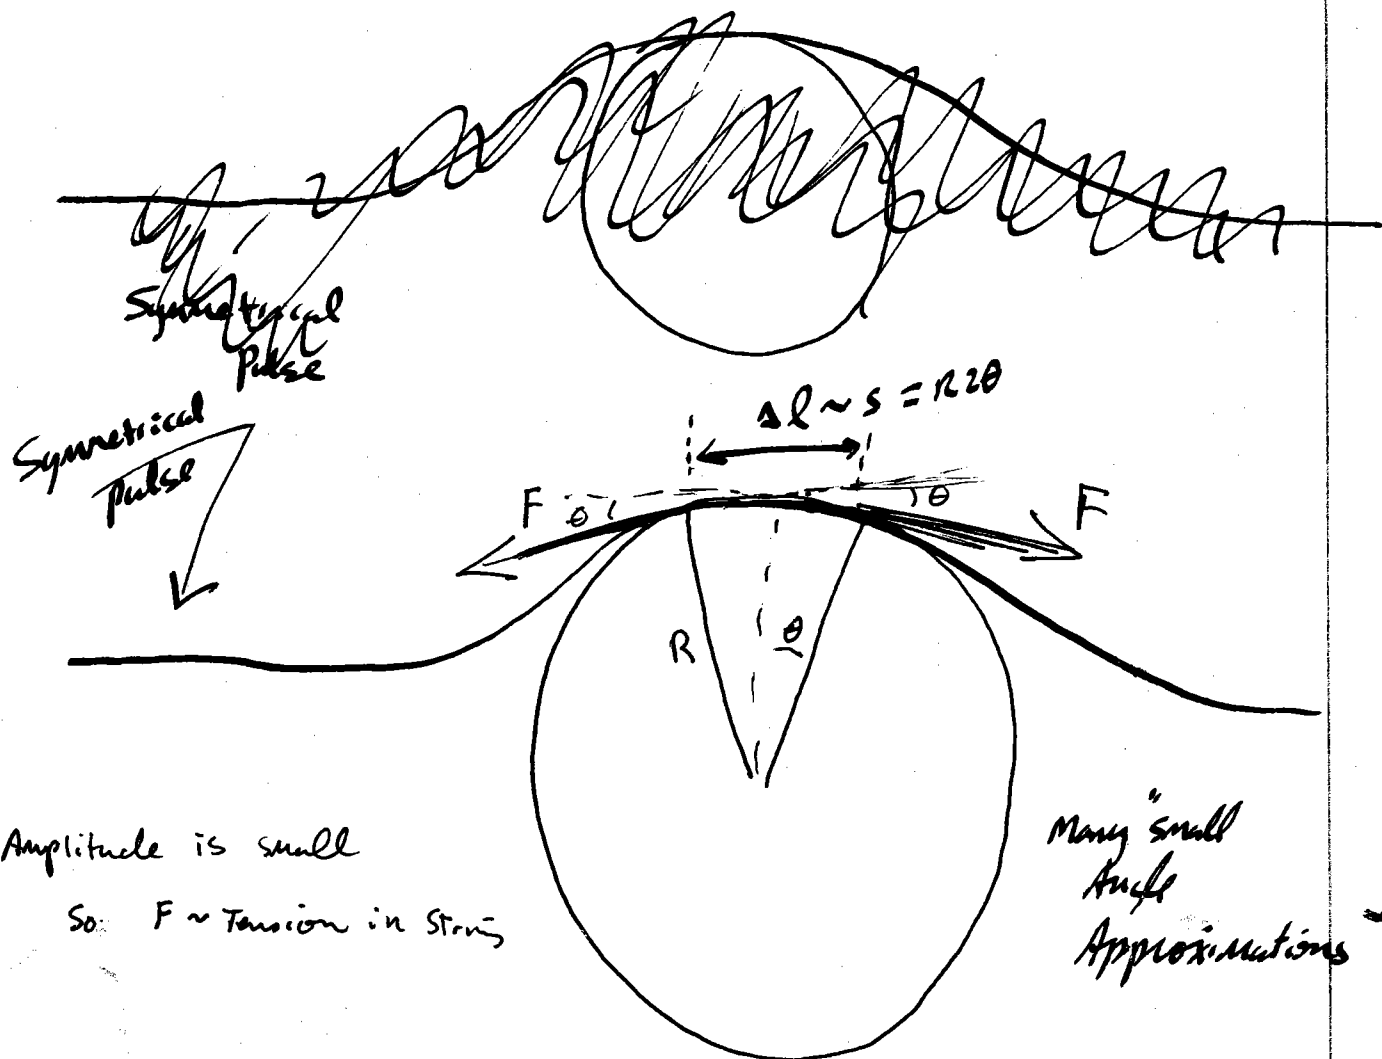 Symmetrical
Pulse
Δl ~ s = R2θ
Symmetrical
pulse
F θ
θ F
R θ
Amplitude is small
So: F ~ Tension in String
Many "small
Angle
Approximations